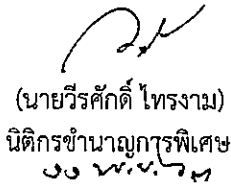 (นายวีรศักดิ์ ไทรงาม)
นิติกรชำนาญการพิเศษ